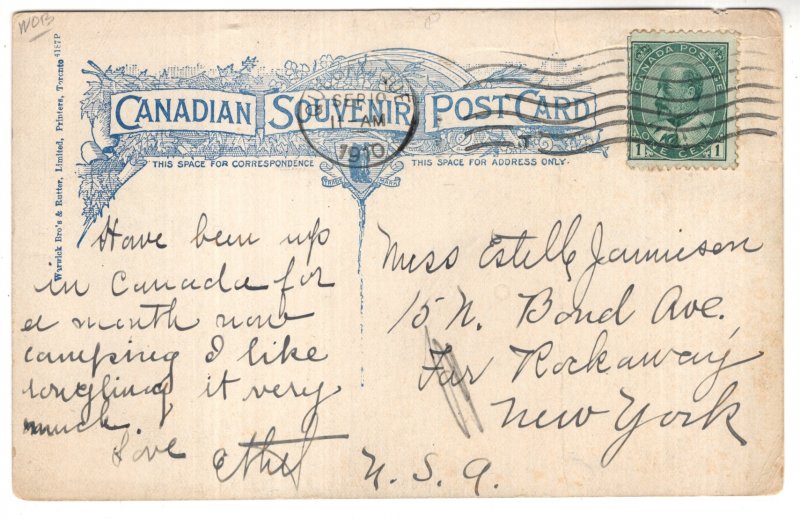 WOB
Warwick Bro's & Rutter, Limited, Printers, Toronto 4187P
CANADIAN SOUVENIR POST CARD
THIS SPACE FOR CORRESPONDENCE
THIS SPACE FOR ADDRESS ONLY.
SEP 10
11 AM
1910
CANADA POSTAGE
1 CENT 1
Have been up
in Canada for
a month now
camping I like
roughing it very
much.
Love Ethel
Miss Estelle Jamieson
15 N. Bond Ave.
Far Rockaway
New York
U.S.A.